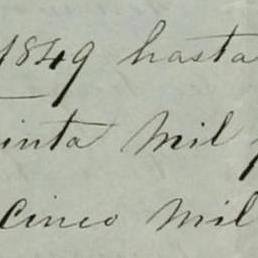 1849 hasta
inta Mil
Cinco Mil